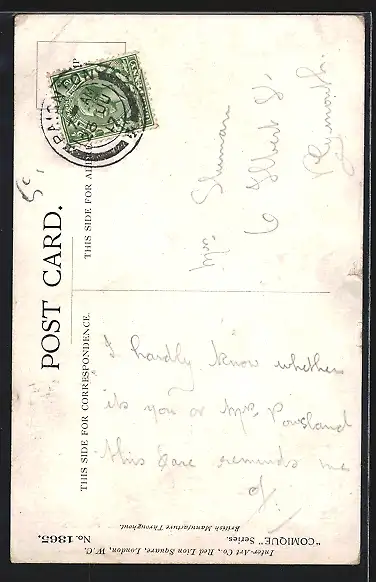 POST CARD.
THIS SIDE FOR CORRESPONDENCE.
THIS SIDE FOR
PAIGNTON
Mrs Shumara
6 Albert St.
Plymouth.
I hardly know whether
its you or Mrs. Powsland
this care reminds me
of.
"COMIQUE" Series. No. 1865.
Inter-Art Co., Red Lion Square, London, W.C.
British Manufacture Throughout.